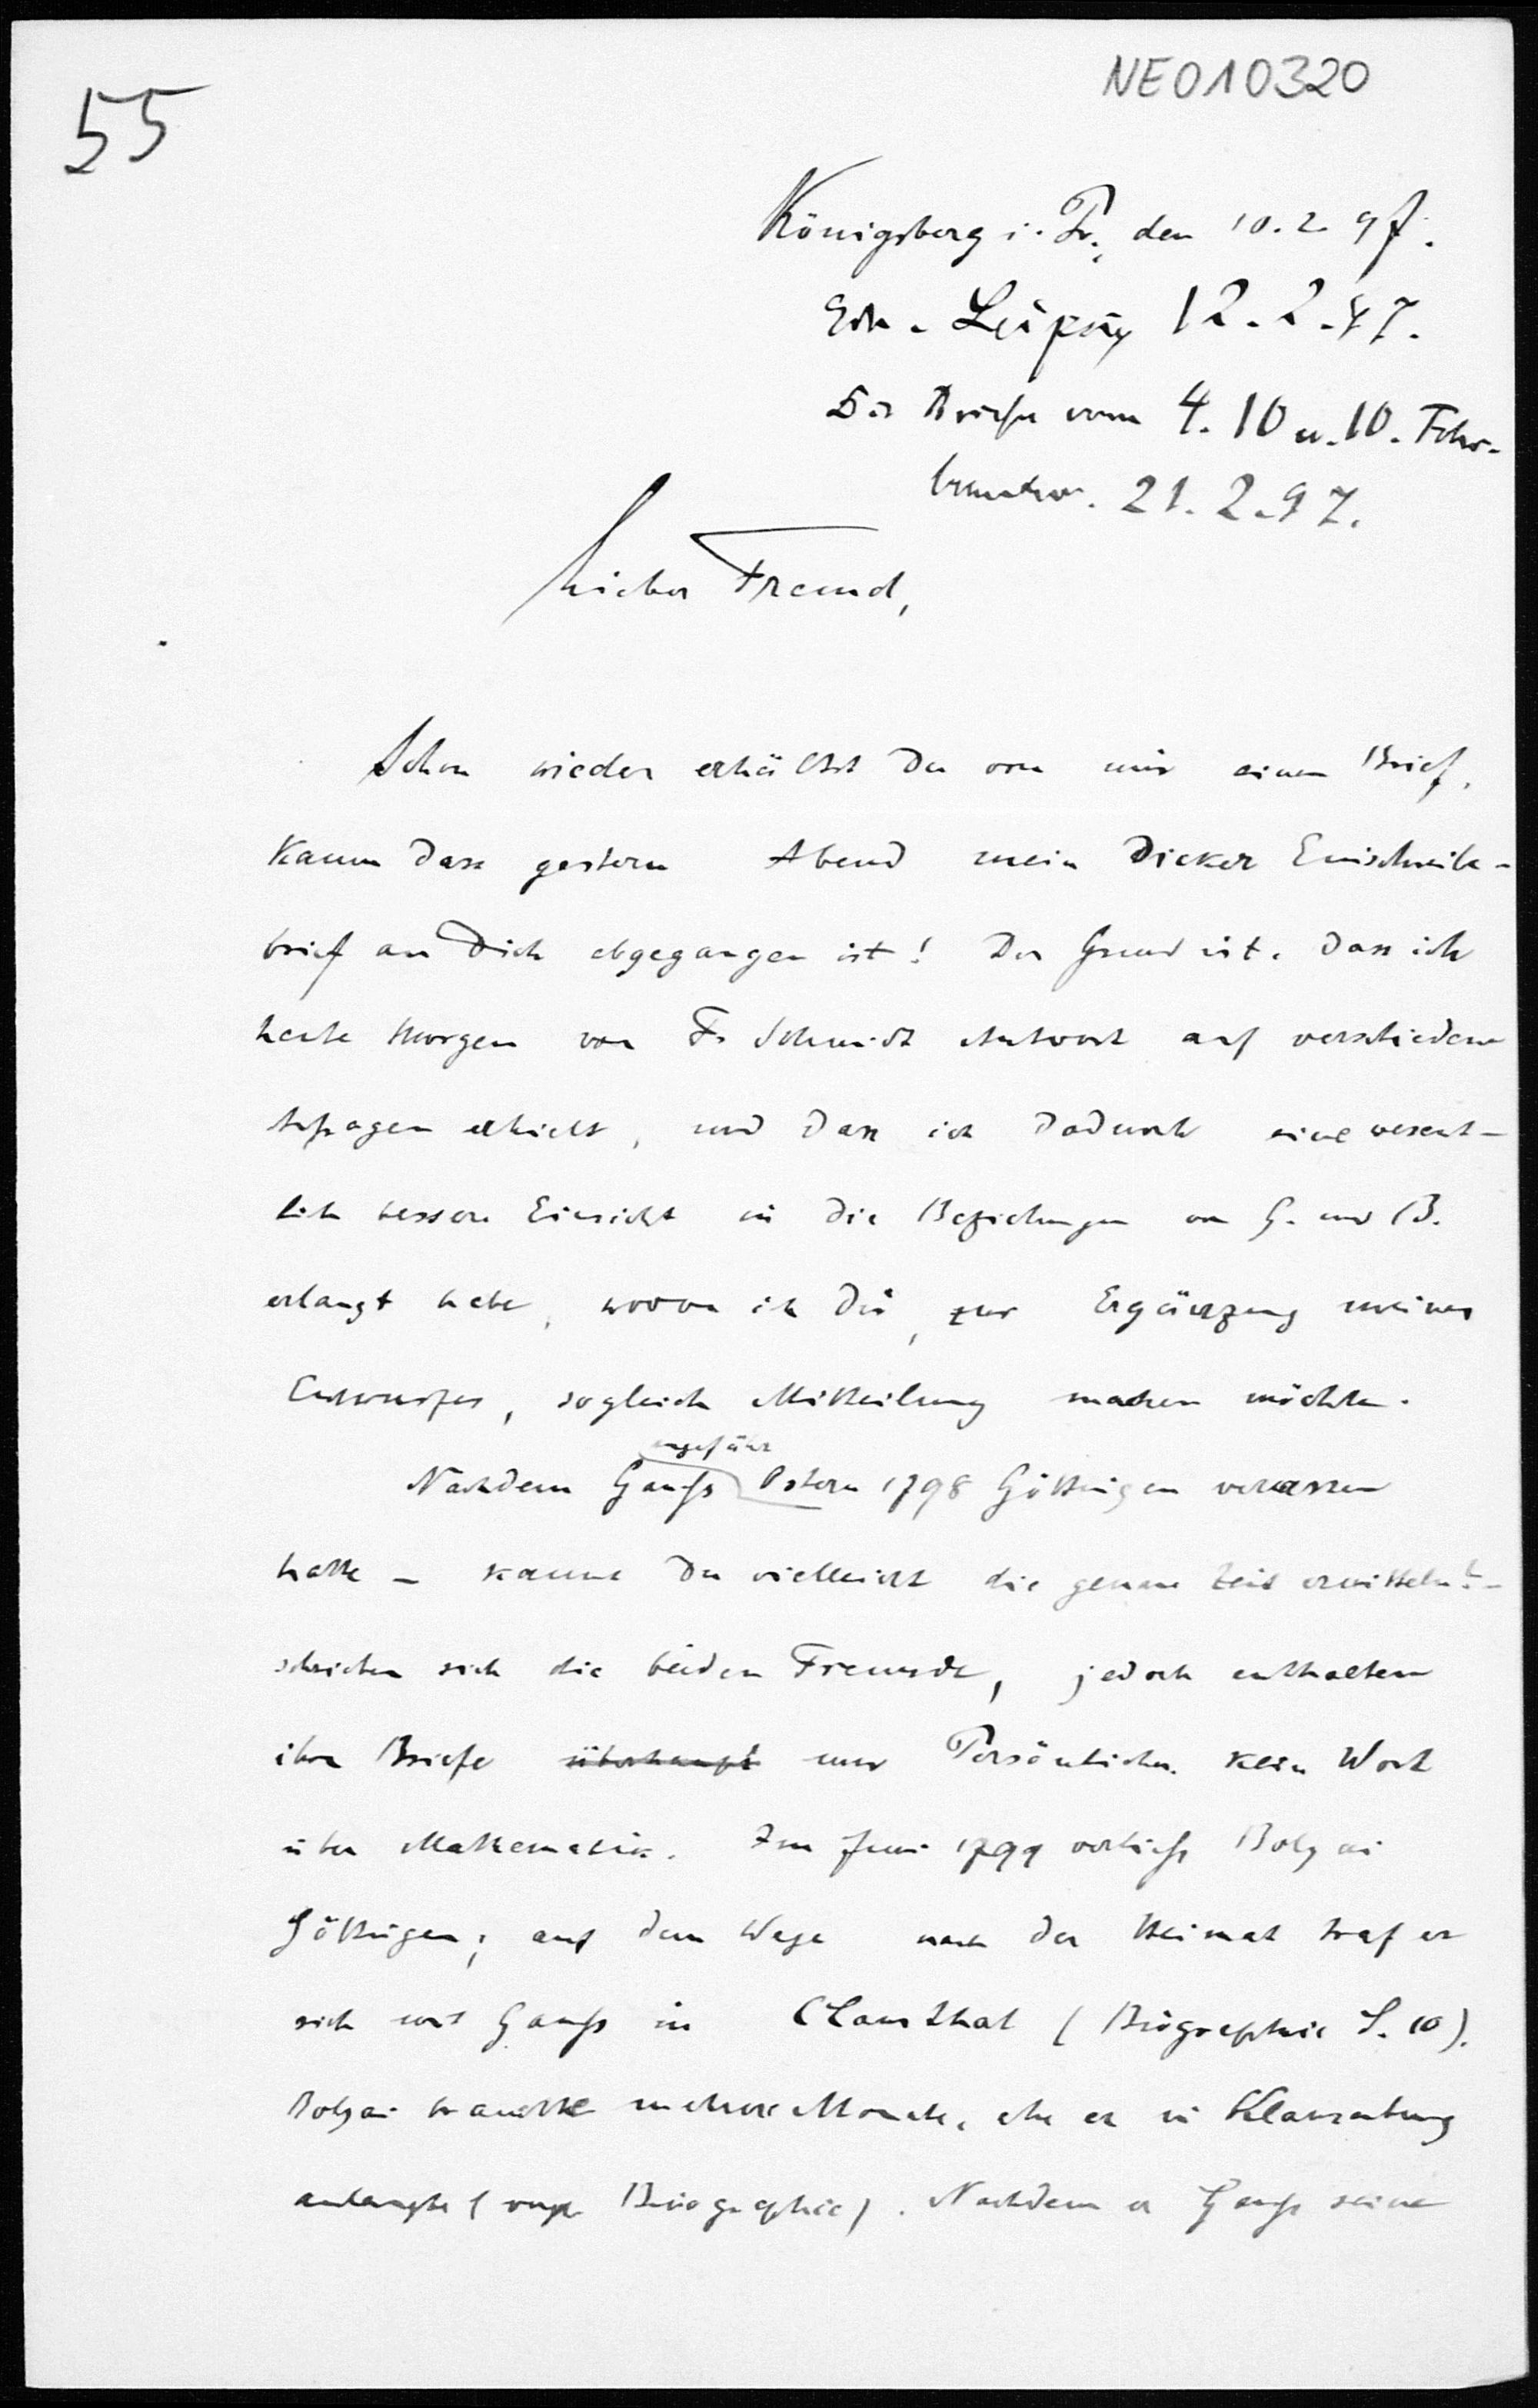 55
NE010320
Königsberg i. Pr., den 10. 2. 97.
Erh. Leipzig 12. 2. 97.
Die Briefe vom 4. 10 u. 10. Febr.
beantw. 21. 2. 97.
Lieber Freund,
Schon wieder erhältst Du von mir einen Brief,
kaum dass gestern Abend mein dicker Einschreibe-
brief an Dich abgegangen ist! Der Grund ist, dass ich
heute Morgen von F. Schmidt Antwort auf verschiedene
Anfragen erhielt, und dass ich dadurch eine wesent-
lich bessere Einsicht in die Beziehungen von G. und B.
erlangt habe, wovon ich Dir, zur Ergänzung meines
Entwurfes, sogleich Mittheilung machen möchte.
ungefähr
Nachdem Gauſs Ostern 1798 Göttingen verlassen
hatte – kannst Du vielleicht die genaue Zeit ermitteln? –
schrieben sich die beiden Freunde, jedoch enthalten
ihre Briefe überhaupt nur Persönliches, kein Wort
über Mathematik. Im Juni 1799 verließs Bolyai
Göttingen; auf dem Wege nach der Heimat traf er
sich mit Gauſs in Clausthal (Biographie S. 10).
Bolyai brauchte mehrere Monate, ehe er in Klausenburg
anlangte (vergl. Biographie). Nachdem er Gauſs seine